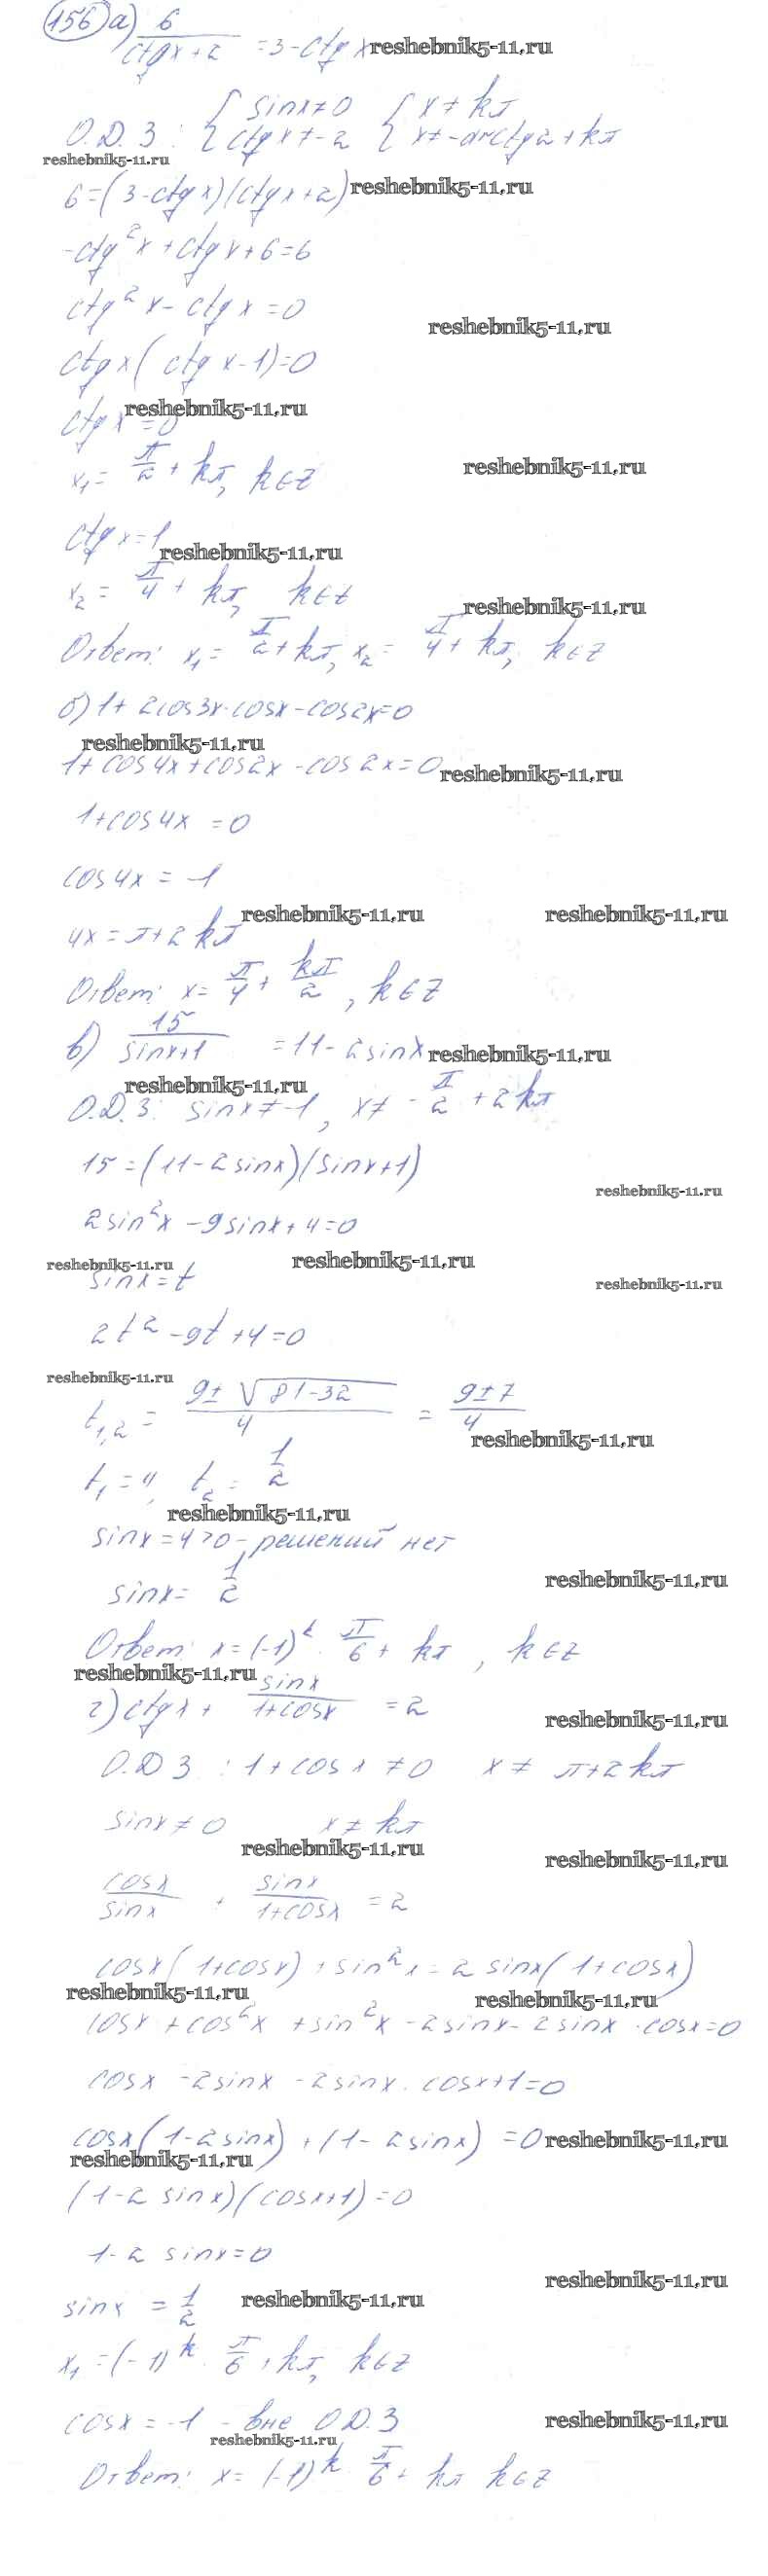 156 а) 6/(ctgx+2) = 3-ctgx reshebnik5-11.ru
О.Д.З: { sinx≠0 { x≠kπ
ctgx≠-2 x≠-arcctg2+kπ
reshebnik5-11.ru
6=(3-ctgx)(ctgx+2) reshebnik5-11.ru
-ctg²x+ctgx+6=6
ctg²x-ctgx=0
reshebnik5-11.ru
ctgx(ctgx-1)=0
reshebnik5-11.ru
ctgx=0
x₁= π/2 + kπ, k∈z reshebnik5-11.ru
ctgx=1
reshebnik5-11.ru
x₂= π/4 + kπ, k∈z reshebnik5-11.ru
Ответ: x₁= π/2+kπ, x₂= π/4+kπ, k∈z
б) 1+2cos3x·cosx-cos2x=0
reshebnik5-11.ru
1+cos4x+cos2x-cos2x=0 reshebnik5-11.ru
1+cos4x=0
cos4x=-1
reshebnik5-11.ru reshebnik5-11.ru
4x=π+2kπ
Ответ: x= π/4 + kπ/2, k∈z
в) 15/(sinx+1) =11-2sinx reshebnik5-11.ru
reshebnik5-11.ru
О.Д.З: sinx≠-1, x≠ -π/2 +2kπ
15=(11-2sinx)(sinx+1)
reshebnik5-11.ru
2sin²x-9sinx+4=0
reshebnik5-11.ru reshebnik5-11.ru
sinx=t reshebnik5-11.ru
2t²-9t+4=0
reshebnik5-11.ru
t₁,₂= (9±√(81-32))/4 = (9±7)/4
reshebnik5-11.ru
t₁=4, t₂= 1/2
reshebnik5-11.ru
sinx=4>0-решений нет
sinx= 1/2 reshebnik5-11.ru
Ответ: x=(-1)^k · π/6 + kπ, k∈z
reshebnik5-11.ru
г) ctgx+ sinx/(1+cosx) =2 reshebnik5-11.ru
О.Д.З: 1+cosx≠0 x≠π+2kπ
sinx≠0 x≠kπ
reshebnik5-11.ru reshebnik5-11.ru
cosx/sinx + sinx/(1+cosx) =2
cosx(1+cosx)+sin²x=2sinx(1+cosx)
reshebnik5-11.ru reshebnik5-11.ru
cosx+cos²x+sin²x-2sinx-2sinx·cosx=0
cosx-2sinx-2sinx·cosx+1=0
cosx(1-2sinx)+(1-2sinx)=0 reshebnik5-11.ru
reshebnik5-11.ru
(1-2sinx)(cosx+1)=0
1-2sinx=0
reshebnik5-11.ru
sinx = 1/2 reshebnik5-11.ru
x₁=(-1)^k · π/6 + kπ, k∈z
cosx=-1 - вне О.Д.З reshebnik5-11.ru
reshebnik5-11.ru
Ответ: x=(-1)^k π/6 + kπ k∈z